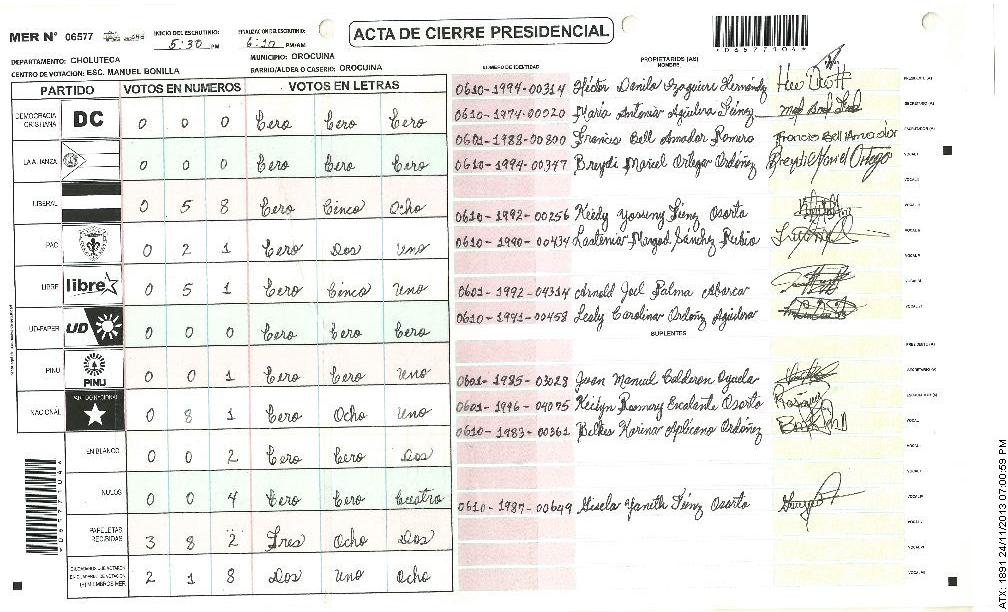 MER N° 06577
INICIO DEL ESCRUTINIO:
5:30 PM
FINALIZACION DEL ESCRUTINIO:
6:10 PM/AM
ACTA DE CIERRE PRESIDENCIAL
*06577104*
DEPARTAMENTO: CHOLUTECA
MUNICIPIO: OROCUINA
CENTRO DE VOTACION: ESC. MANUEL BONILLA
BARRIO/ALDEA O CASERIO: OROCUINA
PARTIDO VOTOS EN NUMEROS VOTOS EN LETRAS
NUMERO DE IDENTIDAD
PROPIETARIOS (AS)
NOMBRE
DEMOCRACIA CRISTIANA DC 0 0 0 Cero Cero Cero
LA ALIANZA 0 0 0 Cero Cero Cero
LIBERAL 0 5 8 Cero Cinco Ocho
PAC 0 2 1 Cero Dos Uno
LIBRE libre 0 5 1 Cero Cinco Uno
UD-FAPER UD 0 0 0 Cero Cero Cero
PINU PINU 0 0 1 Cero Cero Uno
NACIONAL PARTIDO NACIONAL 0 8 1 Cero Ocho Uno
EN BLANCO 0 0 2 Cero Cero Dos
NULOS 0 0 4 Cero Cero Cuatro
PAPELETAS RECIBIDAS 3 8 2 Tres Ocho Dos
CIUDADANOS QUE VOTARON 2 1 8 Dos Uno Ocho
0610-1994-00314 Héctor Danilo Izaguirre Hernández
0610-1974-00020 María Antonia Aguilera Núñez
0601-1988-00800 Francis Bell Amador Romero Francis Bell Amador
0610-1994-00347 Breydi Mariel Ortega Ordóñez Breydi Mariel Ortega
0610-1992-00256 Keidy Yosuny Núñez Osorto
0610-1990-00434 Lastenia Margod Sánchez Rubio
0601-1992-04314 Arnold Joel Palma Abarca
0610-1991-00458 Lesly Carolina Ordóñez Aguilera
SUPLENTES
0601-1985-03028 Juan Manuel Calderon Oyuela
0601-1996-04075 Keidyn Rosmery Escalante Osorto
0610-1983-00361 Belkes Karina Aplicano Ordóñez
0610-1987-00649 Gisela Yanith Núñez Osorto
*06577104*
ATX: 1891 24/11/2013 07:00:59 PM